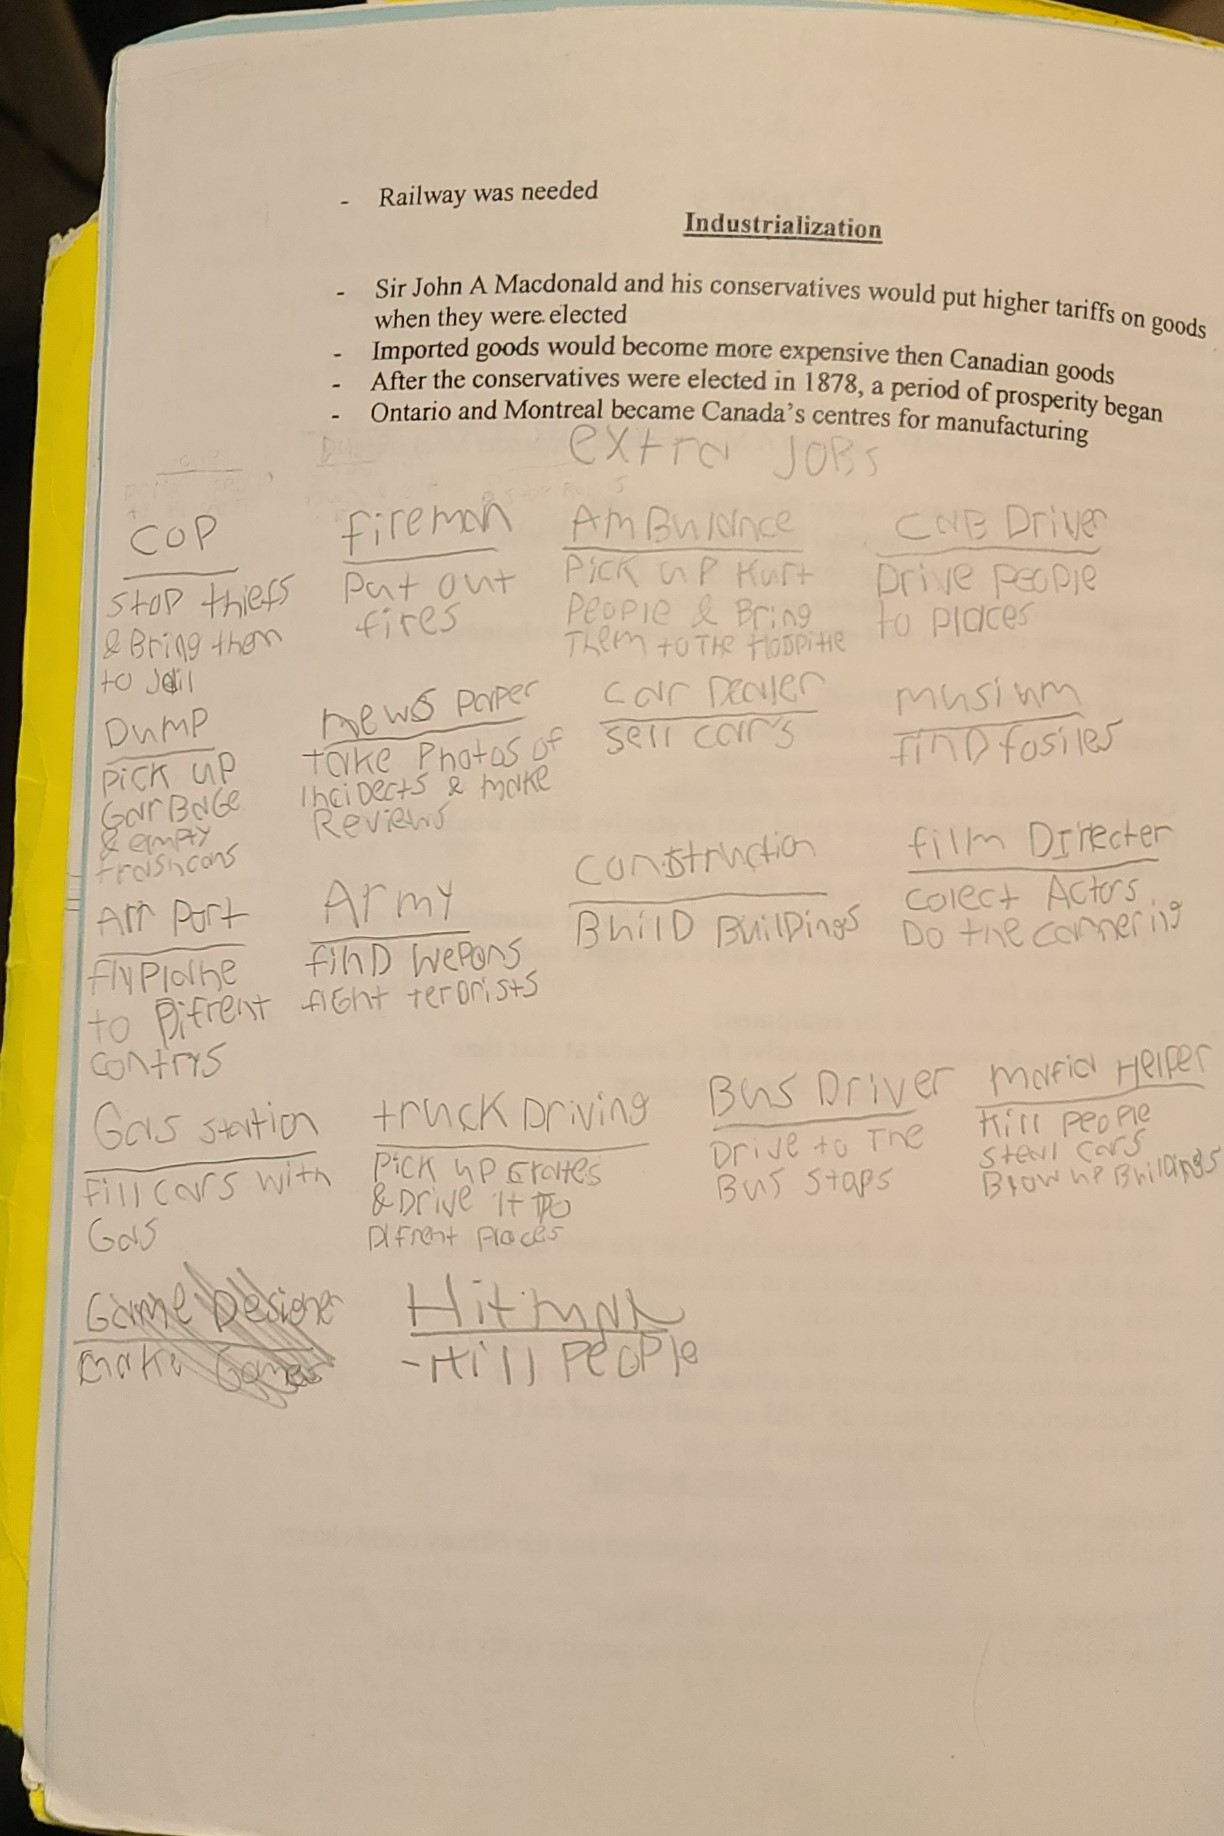 - Railway was needed
Industrialization
- Sir John A Macdonald and his conservatives would put higher tariffs on goods
when they were elected
- Imported goods would become more expensive then Canadian goods
- After the conservatives were elected in 1878, a period of prosperity began
- Ontario and Montreal became Canada's centres for manufacturing
extra JOBs
COP
Stop thiefs
& Bring them
to Jail
fireman
Put out
fires
AmBulance
Pick up Hurt
People & Bring
Them to THe HospitLe
CAB Driver
Drive People
to places
Dump
Pick up
GarBaGe
& empty
trashcans
news paper
take Photos of
Incidects & make
Reviews
car Dealer
sell cars
musium
finD fosiles
Air Port
fly Plane
to Difrent
contrys
Army
finD wepons
fiGht terorists
construction
BuilD BuilDings
film Directer
colect Actors
Do the camering
Gas station
fill cars with
Gas
truck Driving
Pick up crates
& Drive it to
Difrent places
Bus Driver
Drive to The
Bus Stops
mafia Helper
Kill people
steal cars
Blow up Buildings
Game Designer
make Games
Hitman
- Kill people